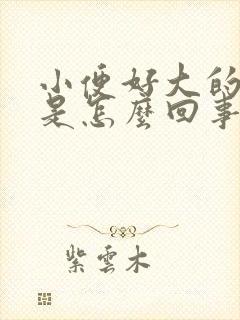 小便好大的
是怎麼回事
紫雲木